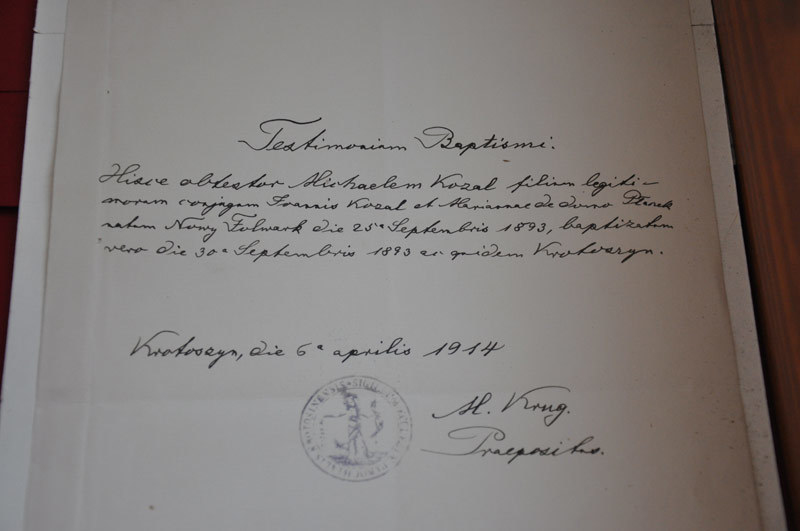 Testimonium Baptismi.
Hisce obtestor Michaelem Kozal filium legiti-
morum conjugum Joannis Kozal et Mariannae de domo Płaczek
natum Nowy Folwark die 25a Septembris 1893, baptizatum
vero die 30a Septembris 1893 ac quidem Krotoszyn.
Krotoszyn, die 6a aprilis 1914
M. Krug.
Praepositus.